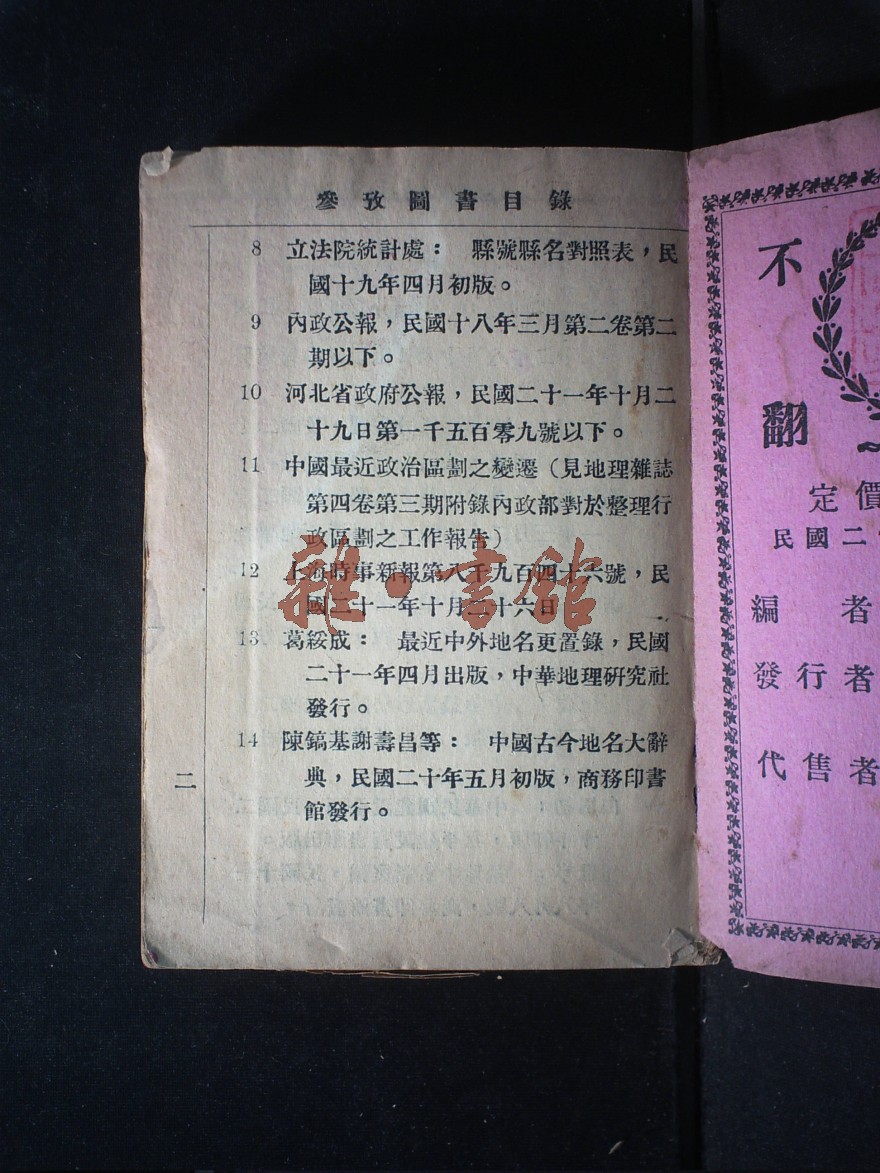 參攷圖書目錄
8 立法院統計處： 縣號縣名對照表，民
國十九年四月初版。
9 內政公報，民國十八年三月第二卷第二
期以下。
10 河北省政府公報，民國二十一年十月二
十九日第一千五百零九號以下。
11 中國最近政治區劃之變遷（見地理雜誌
第四卷第三期附錄內政部對於整理行
政區劃之工作報告）
12 上海時事新報第八千九百四十六號，民
國二十一年十月二十六日
13 葛綏成： 最近中外地名更置錄，民國
二十一年四月出版，中華地理研究社
發行。
14 陳鎬基謝壽昌等： 中國古今地名大辭
典，民國二十年五月初版，商務印書
館發行。
二
雜·書館
不
翻
定價
民國二
編者
發行者
代售者